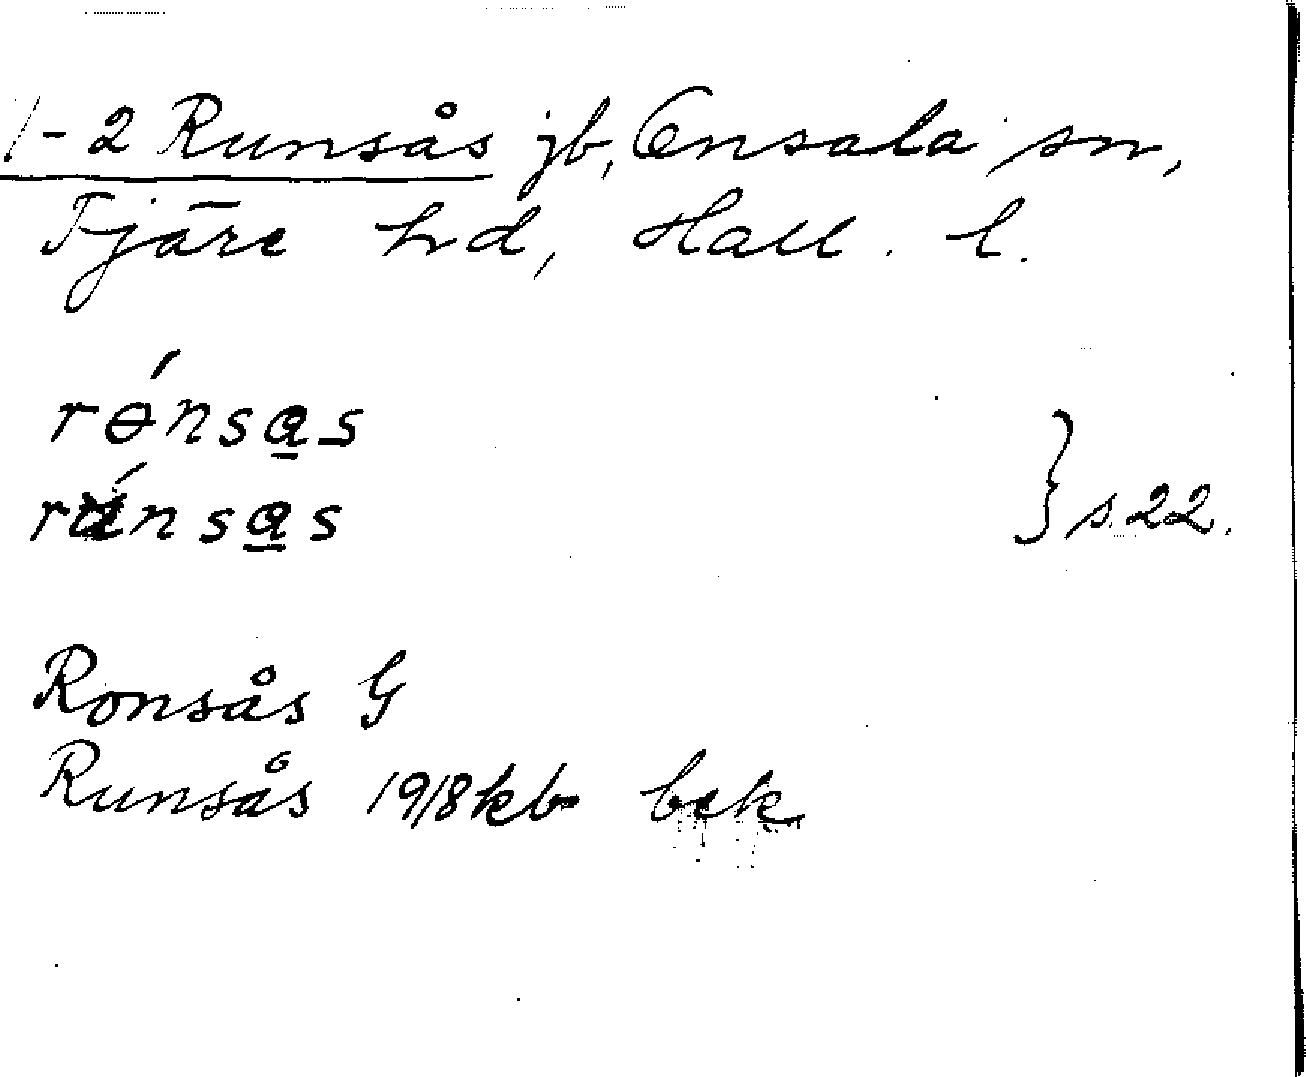 1-2 Runsås jb, Onsala sn,
Fjäre hd, Hall. l.
rɵ́nsa̲s
rúnsa̲s } s. 22.
Ronsås G
Runsås 1918 kb bek